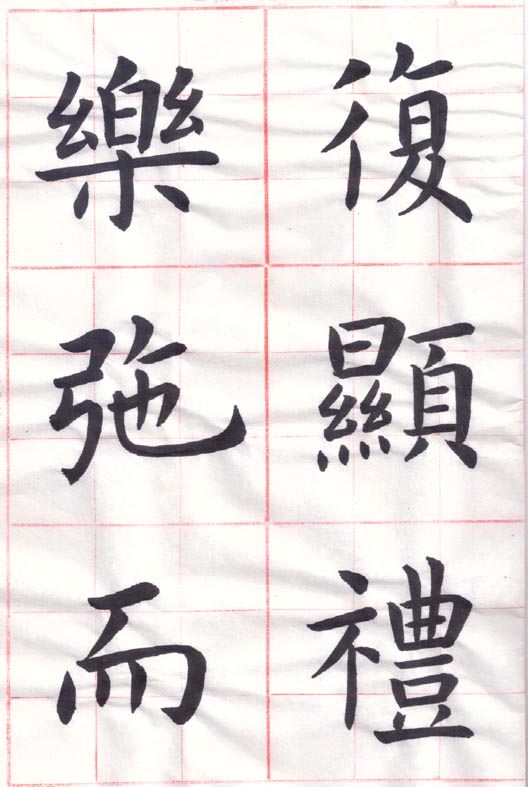 復顯禮
樂弛而